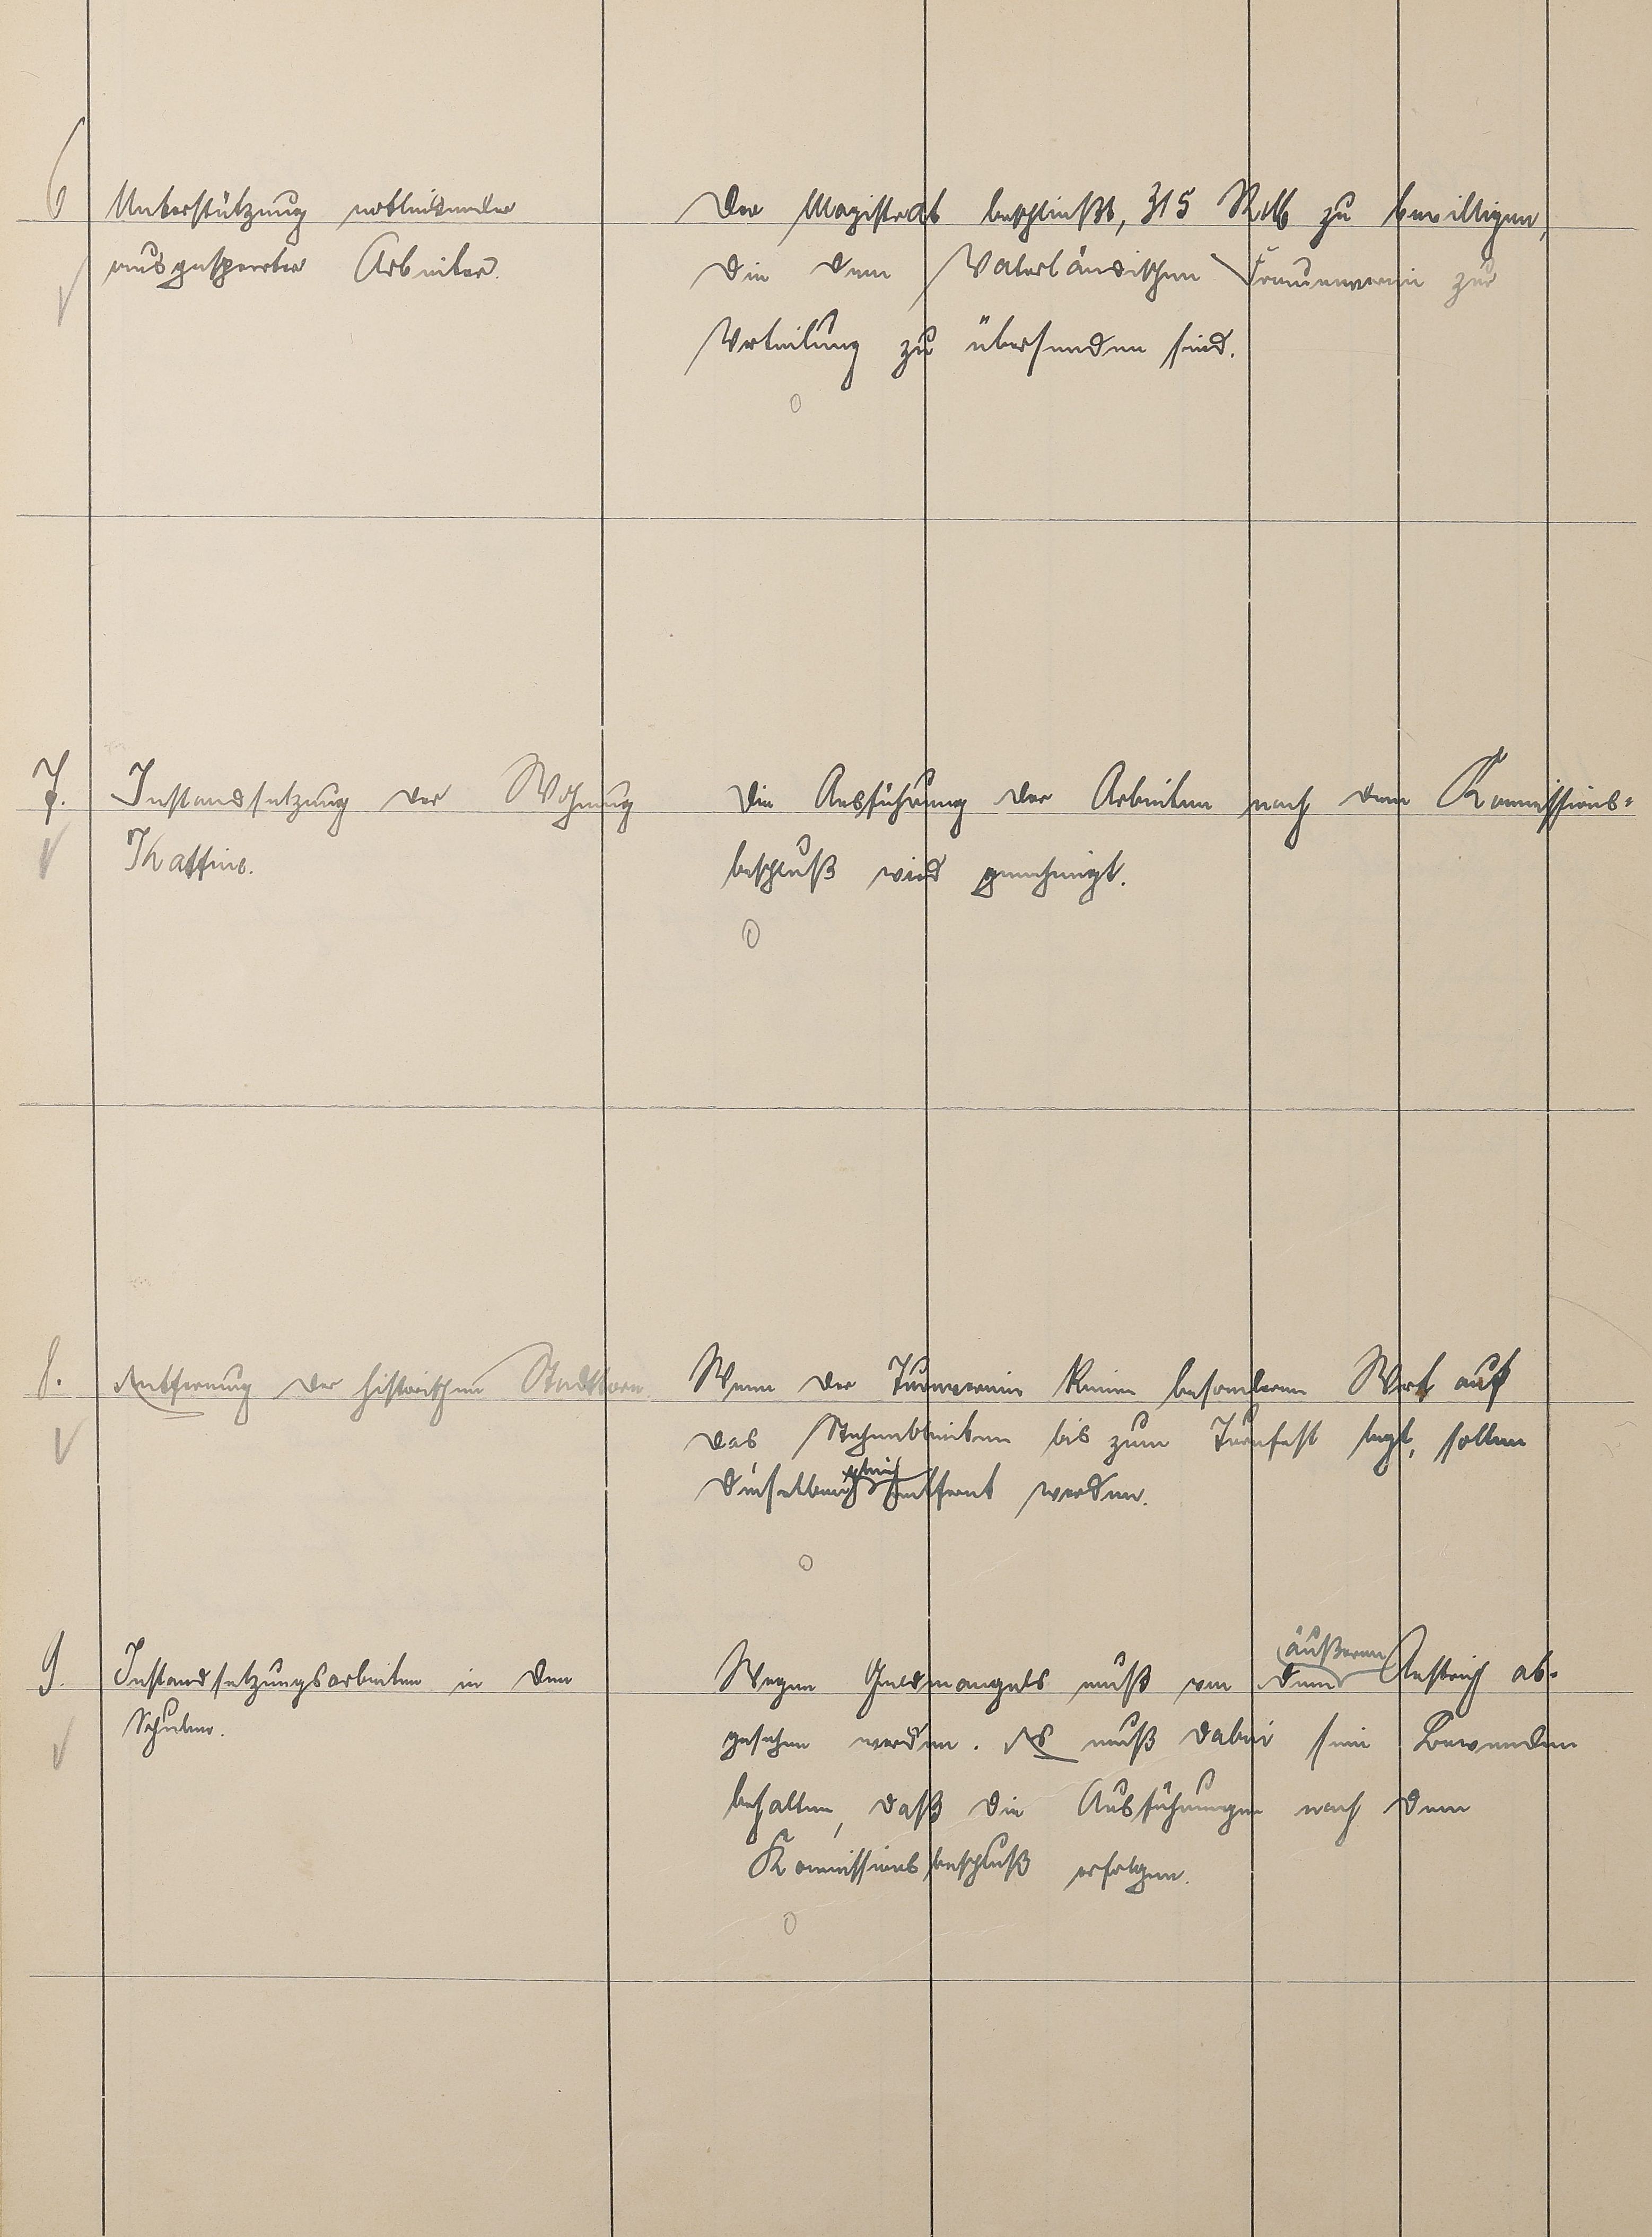 6
Unterstützung notleidender
ausgesperrter Arbeiter.
Der Magistrat beschließt, 315 RM zu bewilligen,
die dem Vaterländischen Frauenverein zur
Verteilung zu übersenden sind.
7.
Instandsetzung der Wohnung
Die Ausführung der Arbeiten nach dem Kommissions-
beschluß wird genehmigt.
8.
Entfernung der historischen Stadttore
Wenn der Turnverein keinen besonderen Wert auf
das Stehenbleiben bis zum Turnfest legt, sollen
dieselben gleich entfernt werden.
9.
Instandsetzungsarbeiten in den
Schulen.
Wegen Geldmangels muß von dem äußeren Anstrich ab-
gesehen werden. Es muß dabei sein Bewenden
behalten, daß die Ausführungen nach dem
Kommissionsbeschluß erfolgen.